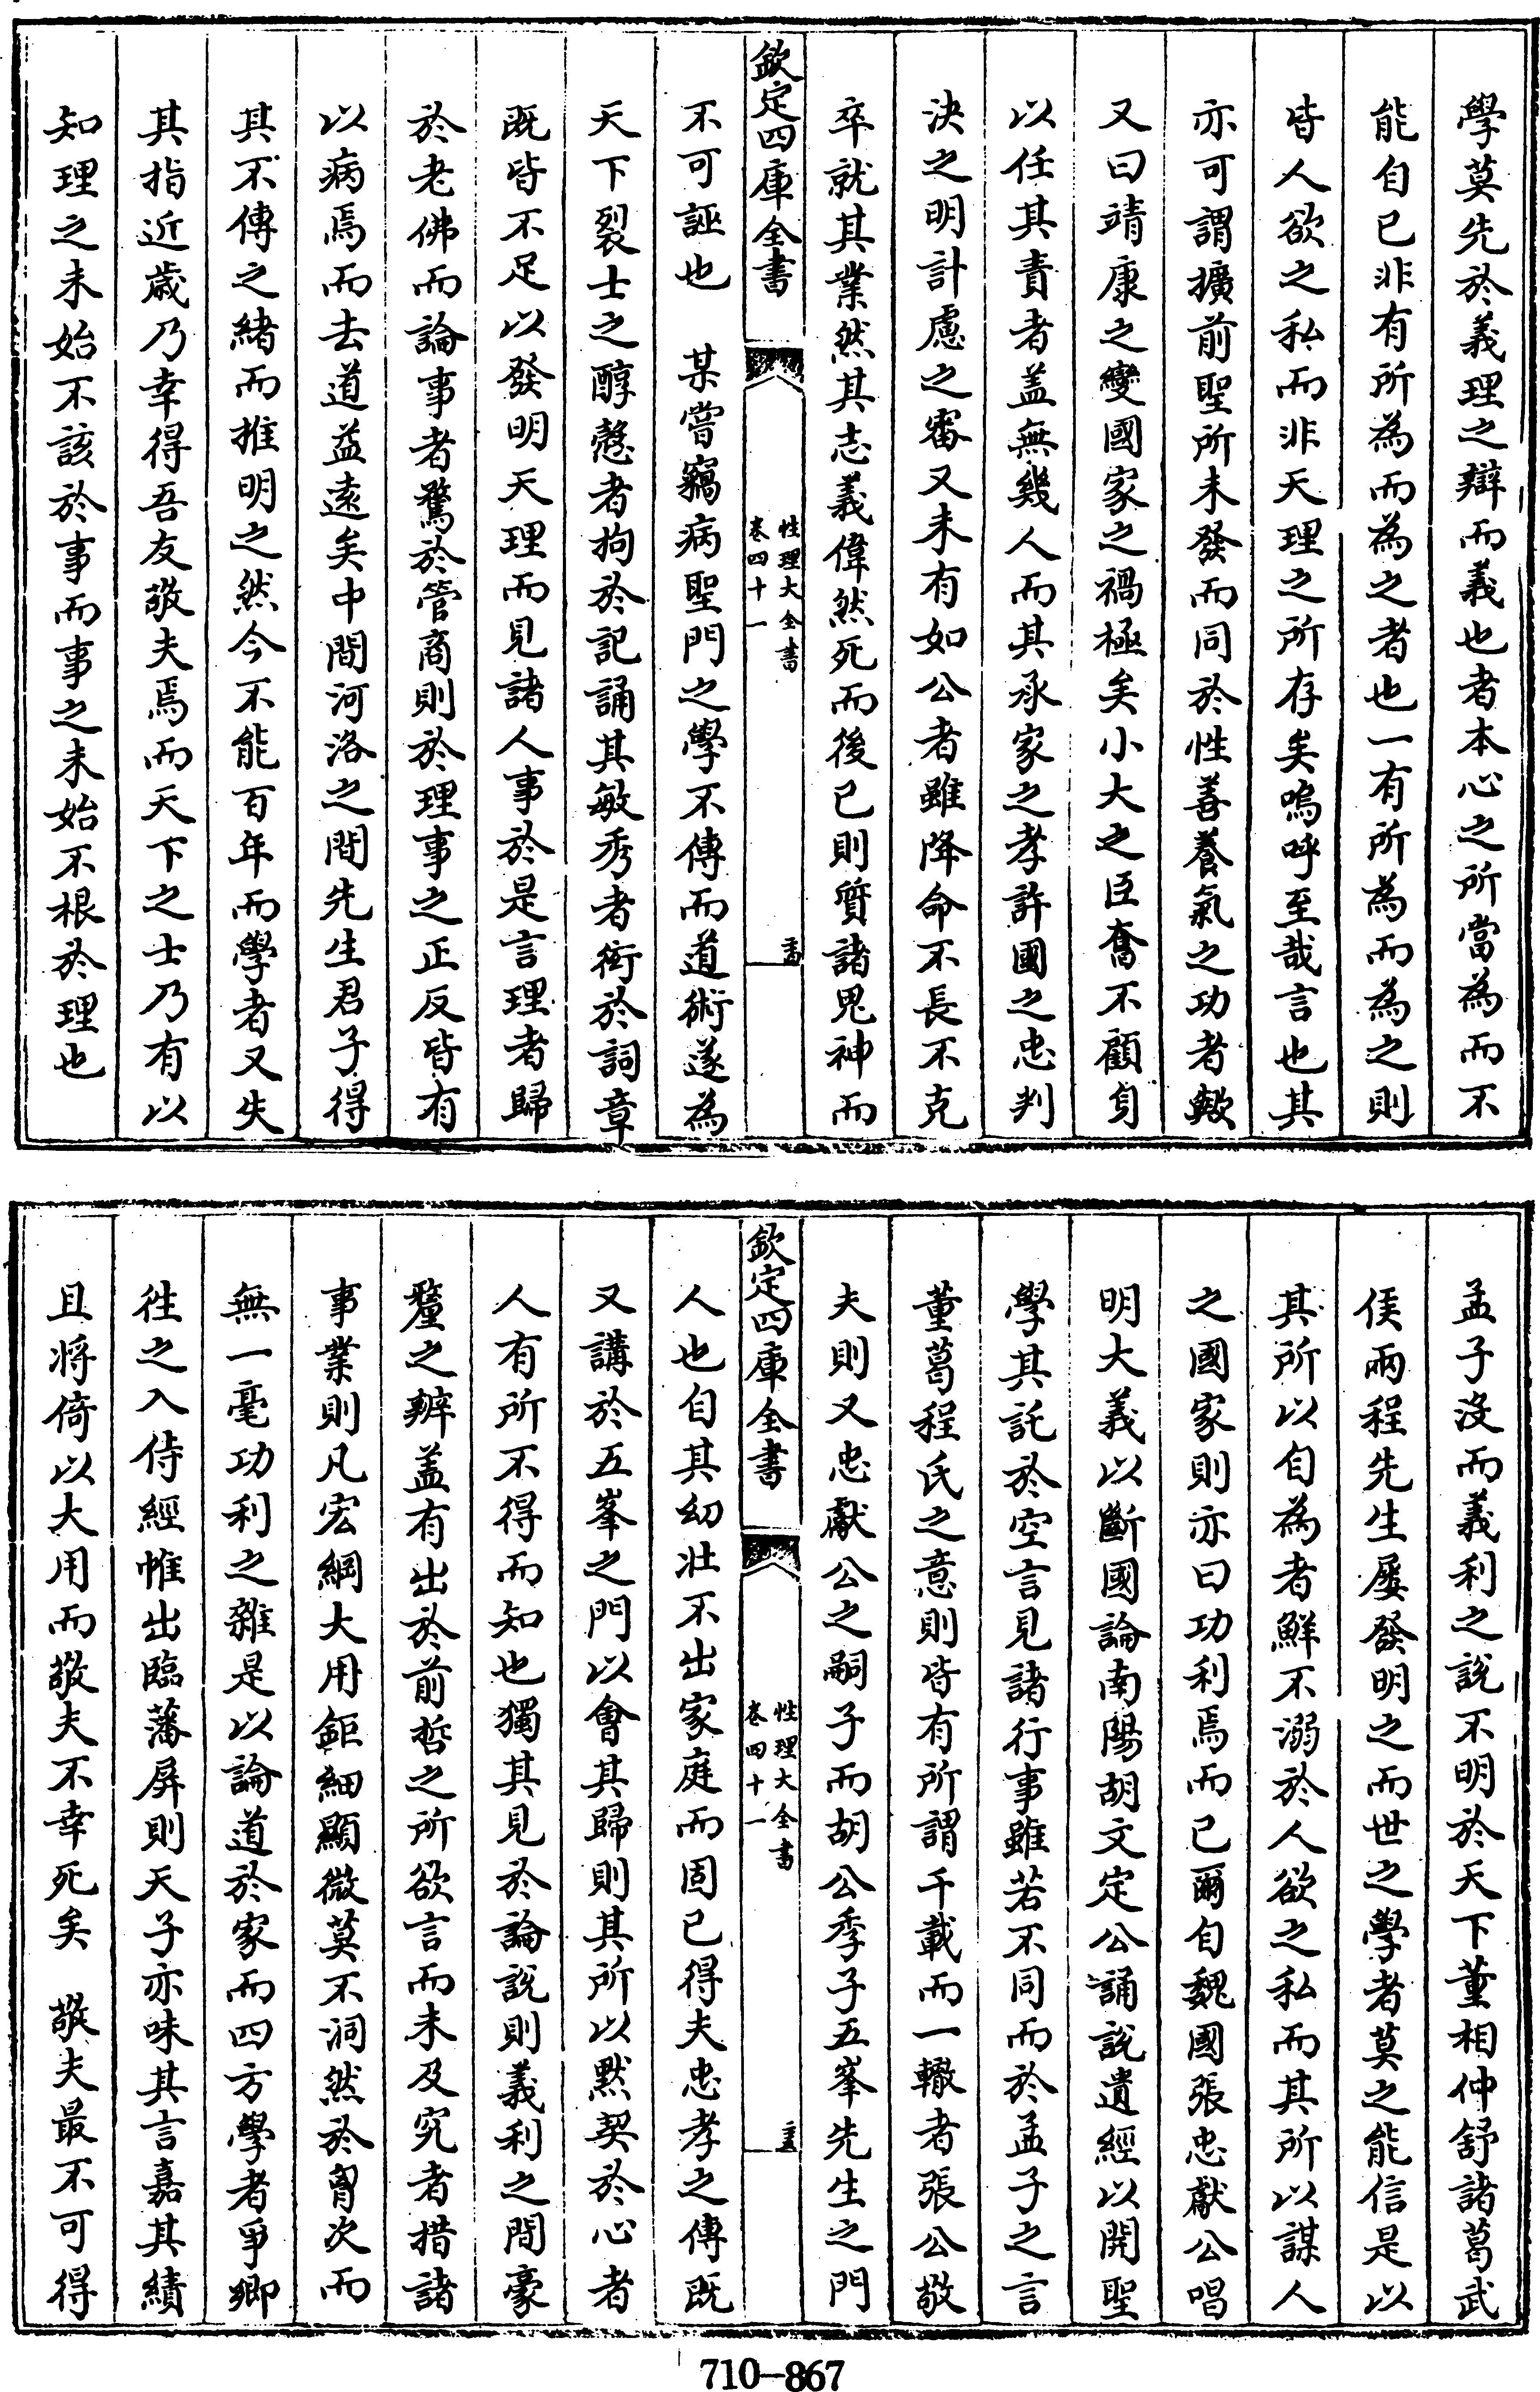 學莫先於義理之辯而義也者本心之所當為而不
能自已非有所為而為之者也一有所為而為之則
皆人欲之私而非天理之所存矣嗚呼至哉言也其
亦可謂擴前聖所未發而同於性善養氣之功者歟
又曰靖康之變國家之禍極矣小大之臣奮不顧身
以任其責者盖無幾人而其承家之孝許國之忠判
決之明計慮之審又未有如公者雖降命不長不克
卒就其業然其志義偉然死而後已則質諸鬼神而
欽定四庫全書
性理大全書
卷四十一
不可誣也 某嘗竊病聖門之學不傳而道術遂為
天下裂士之醇慤者拘於記誦其敏秀者衒於詞章
既皆不足以發明天理而見諸人事於是言理者歸
於老佛而論事者騖於管商則於理事之正反皆有
以病焉而去道益遠矣中間河洛之間先生君子得
其不傳之緒而推明之然今不能百年而學者又失
其指近歳乃幸得吾友敬夫焉而天下之士乃有以
知理之未始不該於事而事之未始不根於理也
孟子沒而義利之說不明於天下董相仲舒諸葛武
侯兩程先生屡發明之而世之學者莫之能信是以
其所以自為者鮮不溺於人欲之私而其所以謀人
之國家則亦曰功利焉而已爾自魏國張忠獻公唱
明大義以斷國論南陽胡文定公誦說遺經以開聖
學其託於空言見諸行事雖若不同而於孟子之言
董葛程氏之意則皆有所謂千載而一轍者張公敬
夫則又忠獻公之嗣子而胡公季子五峯先生之門
欽定四庫全書
性理大全書
卷四十一
人也自其幼壯不出家庭而固已得夫忠孝之傳既
又講於五峯之門以會其歸則其所以默契於心者
人有所不得而知也獨其見於論說則義利之間豪
釐之辨盖有出於前哲之所欲言而未及究者措諸
事業則凡宏綱大用鉅細顯微莫不洞然於胷次而
無一毫功利之雜是以論道於家而四方學者爭鄉
徃之入侍經帷出臨藩屏則天子亦味其言嘉其績
且將倚以大用而敬夫不幸死矣 敬夫最不可得
710-867